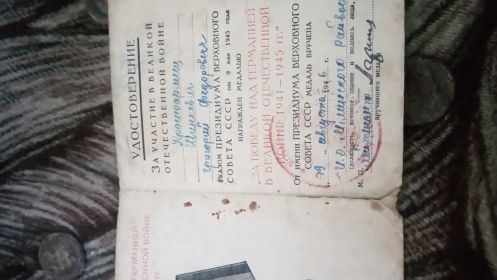 УДОСТОВЕРЕНИЕ
ЗА УЧАСТИЕ В ВЕЛИКОЙ
ОТЕЧЕСТВЕННОЙ ВОЙНЕ
Красноармеец
Григорий Федорович
УКАЗОМ ПРЕЗИДИУМА ВЕРХОВНОГО
СОВЕТА СССР от 9 мая 1945 года
НАГРАЖДЕН МЕДАЛЬЮ
"ЗА ПОБЕДУ НАД ГЕРМАНИЕЙ
В ВЕЛИКОЙ ОТЕЧЕСТВЕННОЙ
ВОЙНЕ 1941—1945 гг."
ОТ ИМЕНИ ПРЕЗИДИУМА ВЕРХОВНОГО
СОВЕТА СССР МЕДАЛЬ ВРУЧЕНА
августа 1946 г.
(должность, военное звание и подпись лица,
М. П.
вручившего медаль)
ГЕРМАНИЕЙ
ЕННОЙ ВОЙНЕ